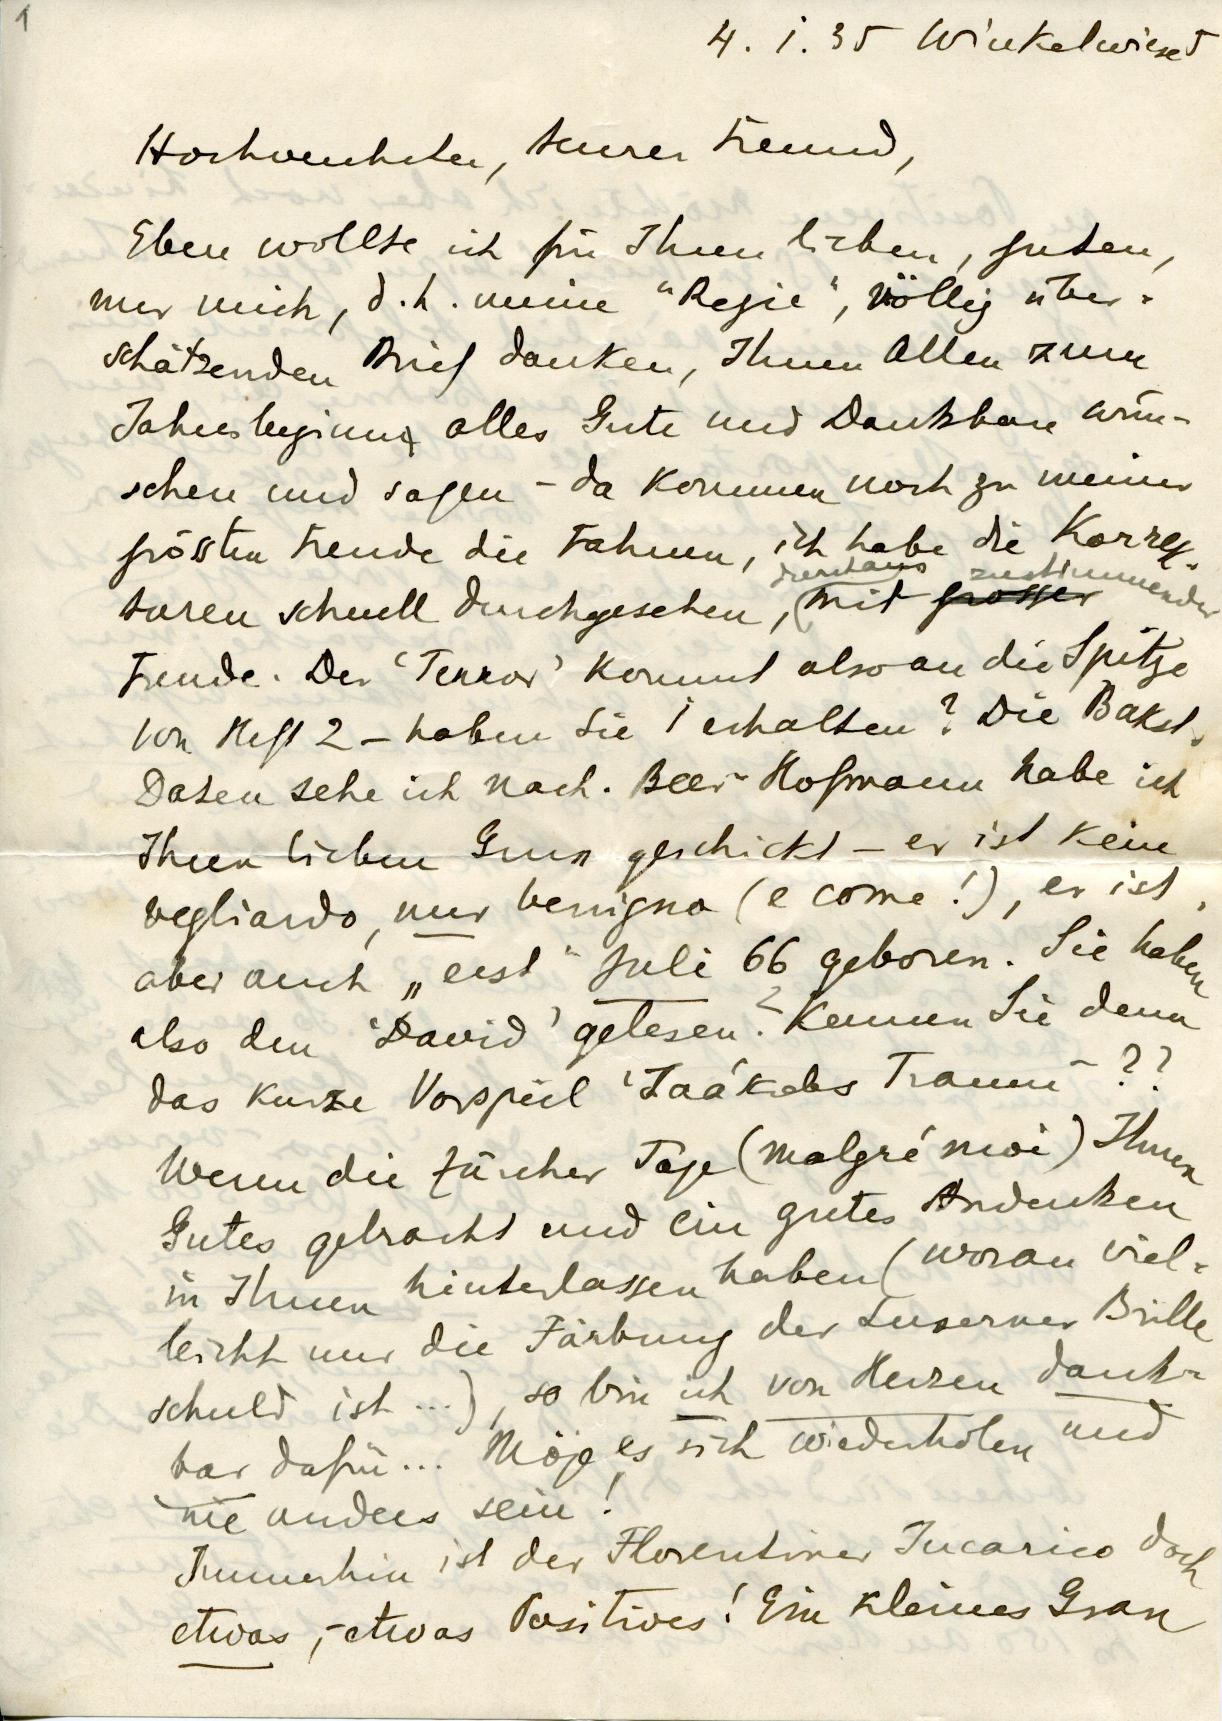 1
4. I. 35 Winkelwiese 5
Hochverehrter, teurer Freund,
Eben wollte ich für Ihren lieben, guten,
nur mich, d. h. meine "Regie", völlig über-
schätzenden Brief danken, Ihnen Allen zum
Jahresbeginn alles Gute und Dankbare wün-
schen und sagen – da kommen noch zu meiner
grössten Freude die Fahnen, ich habe die Korrek-
turen schnell durchgesehen, (mit grosser
durchaus zustimmender
Freude. Der 'Terror' kommt also an die Spitze
von Heft 2 – haben Sie 1 erhalten? Die Bakst-
Daten sehe ich nach. Beer-Hofmann habe ich
Ihren lieben Gruss geschickt – er ist kein
vegliardo, nur benigno (e come!), er ist
aber auch „erst" Juli 66 geboren. Sie haben
also den 'David' gelesen? Kennen Sie denn
das kurze Vorspiel 'Jaákobs Traum' ??
Wenn die Zürcher Tage (malgré moi) Ihnen
Gutes gebracht und ein gutes Andenken
in Ihnen hinterlassen haben (woran viel-
leicht nur die Färbung der Luzerner Brille
schuld ist ...), so bin ich von Herzen dank-
bar dafür... Möge es sich wiederholen und
nie anders sein!
Immerhin ist der Florentiner Incarico doch
etwas, – etwas Positives! Ein kleines Gran